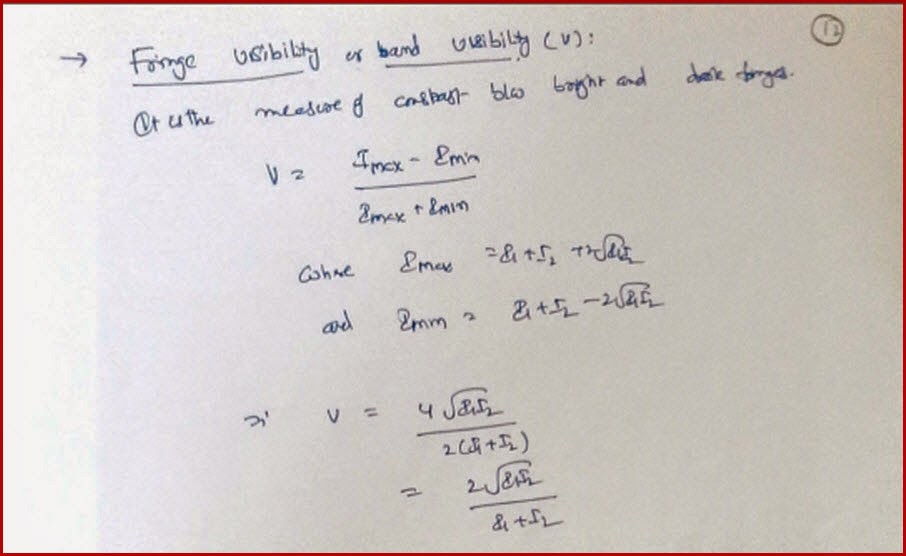 12
→ Fringe visibility or band visibility (V):
It is the measure of contrast b/w bright and dark fringes.
V = (Imax - Imin) / (Imax + Imin)
where Imax = I1 + I2 + 2√I1I2
and Imin = I1 + I2 - 2√I1I2
V = 4√I1I2 / 2(I1 + I2)
= 2√I1I2 / I1 + I2